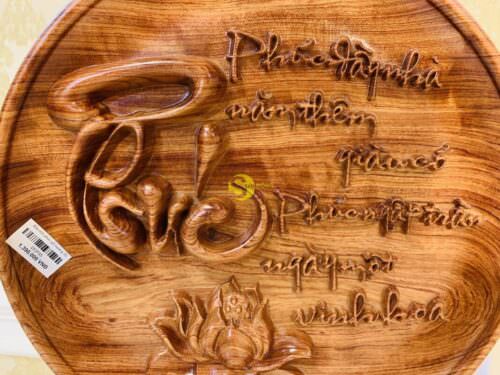 Phúc
Phúc đầy nhà
năm thêm
giàu có
Phúc ngập tràn
ngày một
vinh hoa
VNĐ